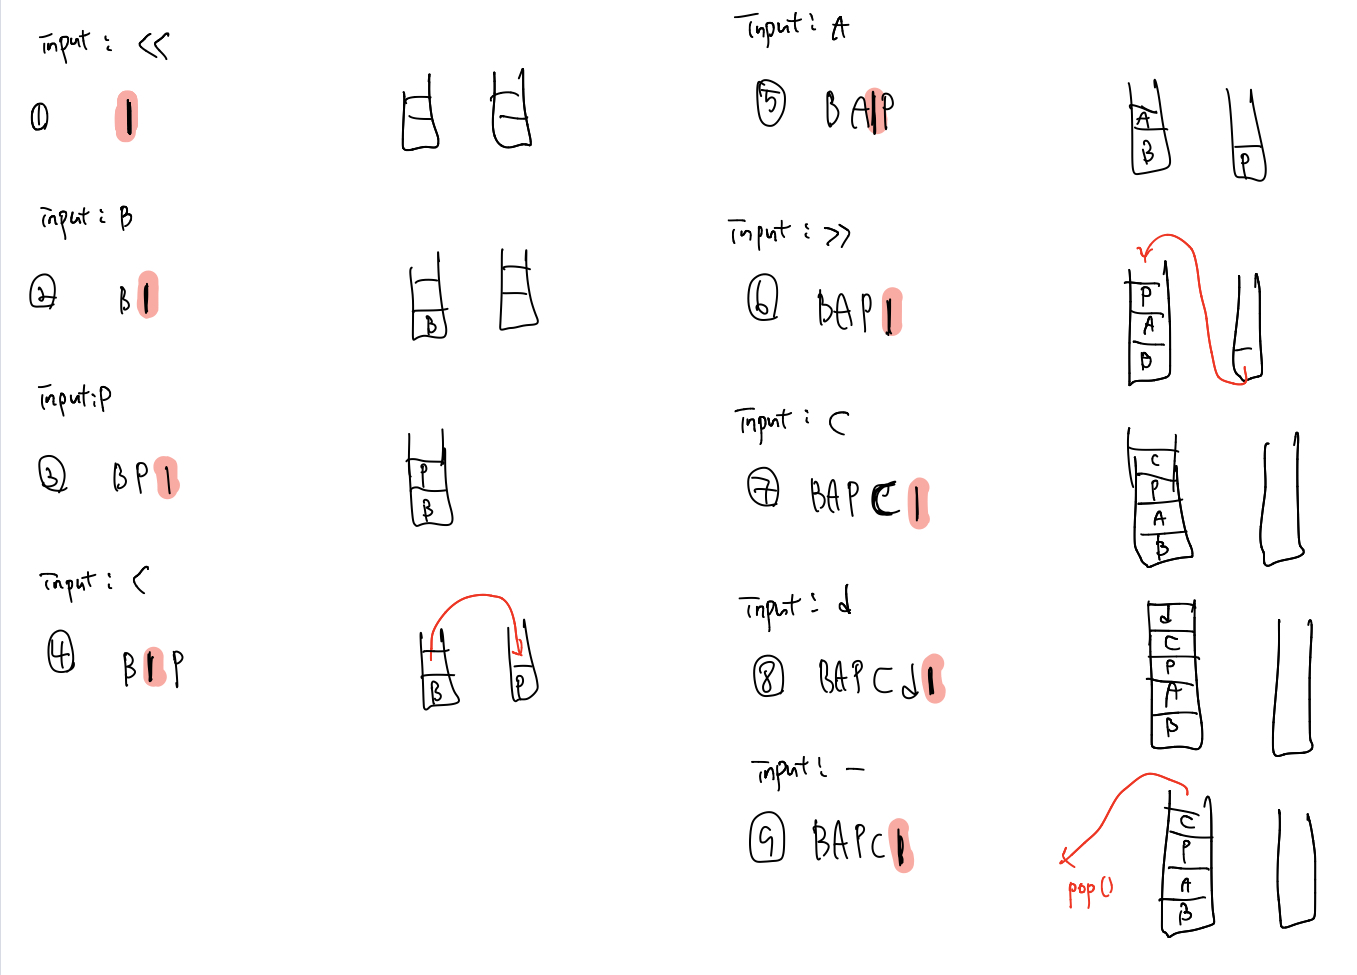 input : <<
①
input : B
② B
B
input:P
③ BP
P
B
input : <
④ B P
B
P
input : A
⑤ BA P
A
B
P
input : >>
⑥ BAP
P
A
B
input : C
⑦ BAPC
C
P
A
B
input : d
⑧ BAPCd
d
C
P
A
B
input : -
⑨ BAPC
C
P
A
B
pop()